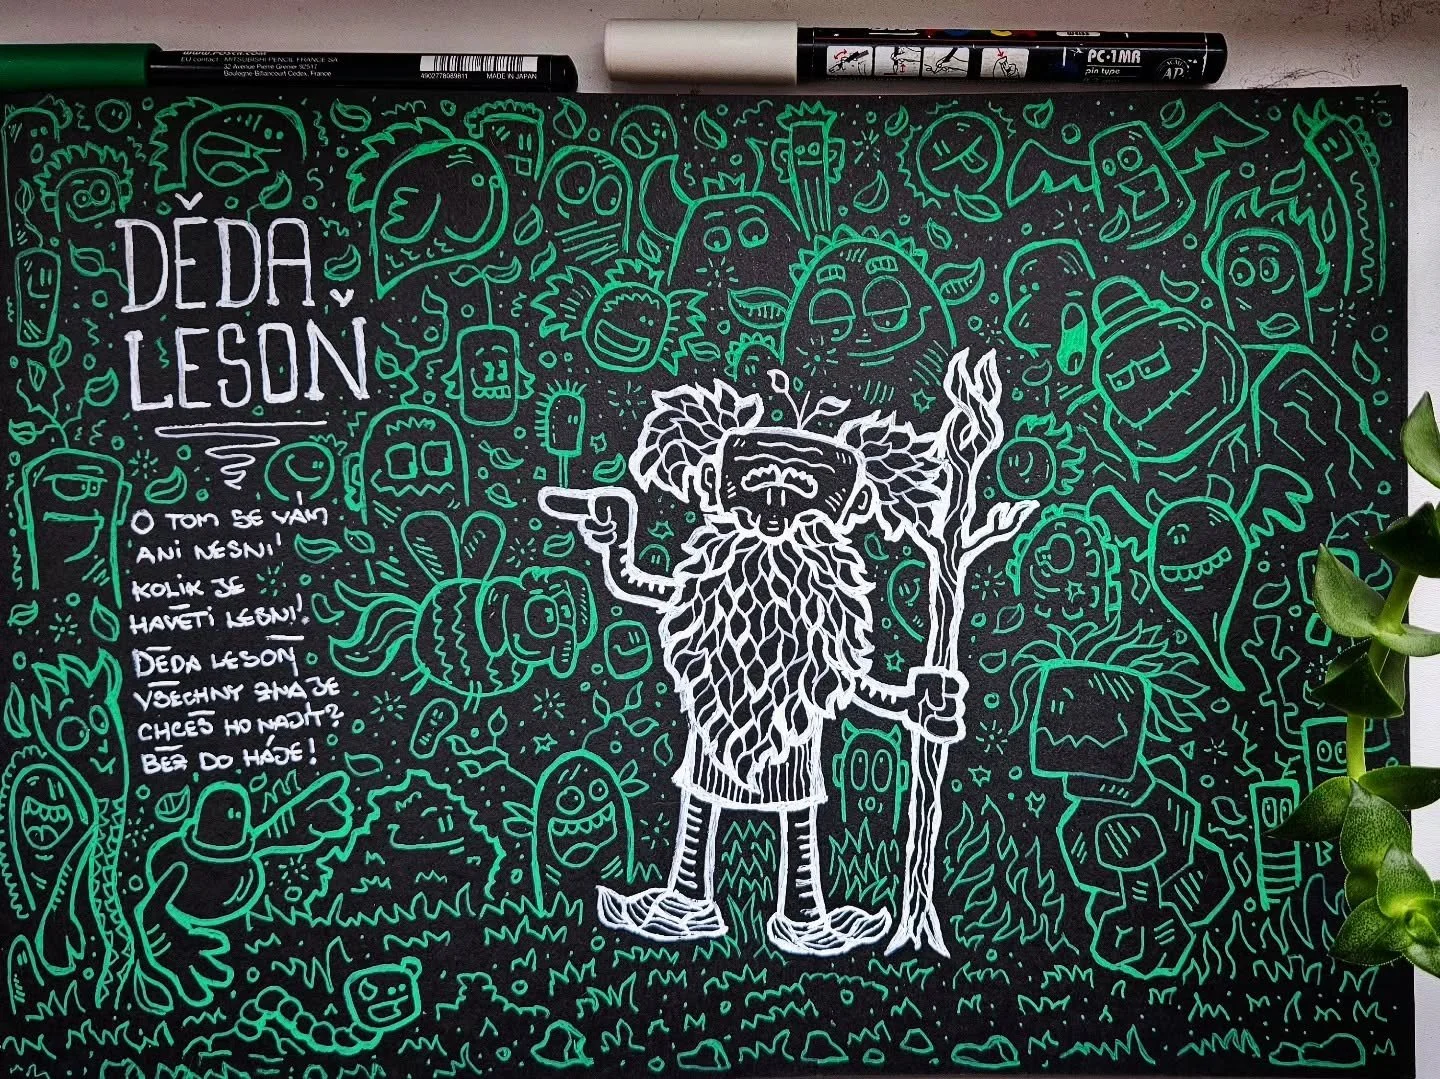 www.posca.com
EU contact : MITSUBISHI PENCIL FRANCE SA
32 Avenue Pierre Grenier 92517
Boulogne-Billancourt Cedex, France
4902778089811 MADE IN JAPAN
PC-1MR
pin type
AP
DĚDA
LESOŇ
O TOM SE VÁM
ANI NESNÍ!
KOLIK JE
HAVĚTI LESNÍ!
DĚDA LESOŇ
VŠECHNY ZNA JE
CHCEŠ HO NAJÍT?
BĚŽ DO HÁJE!